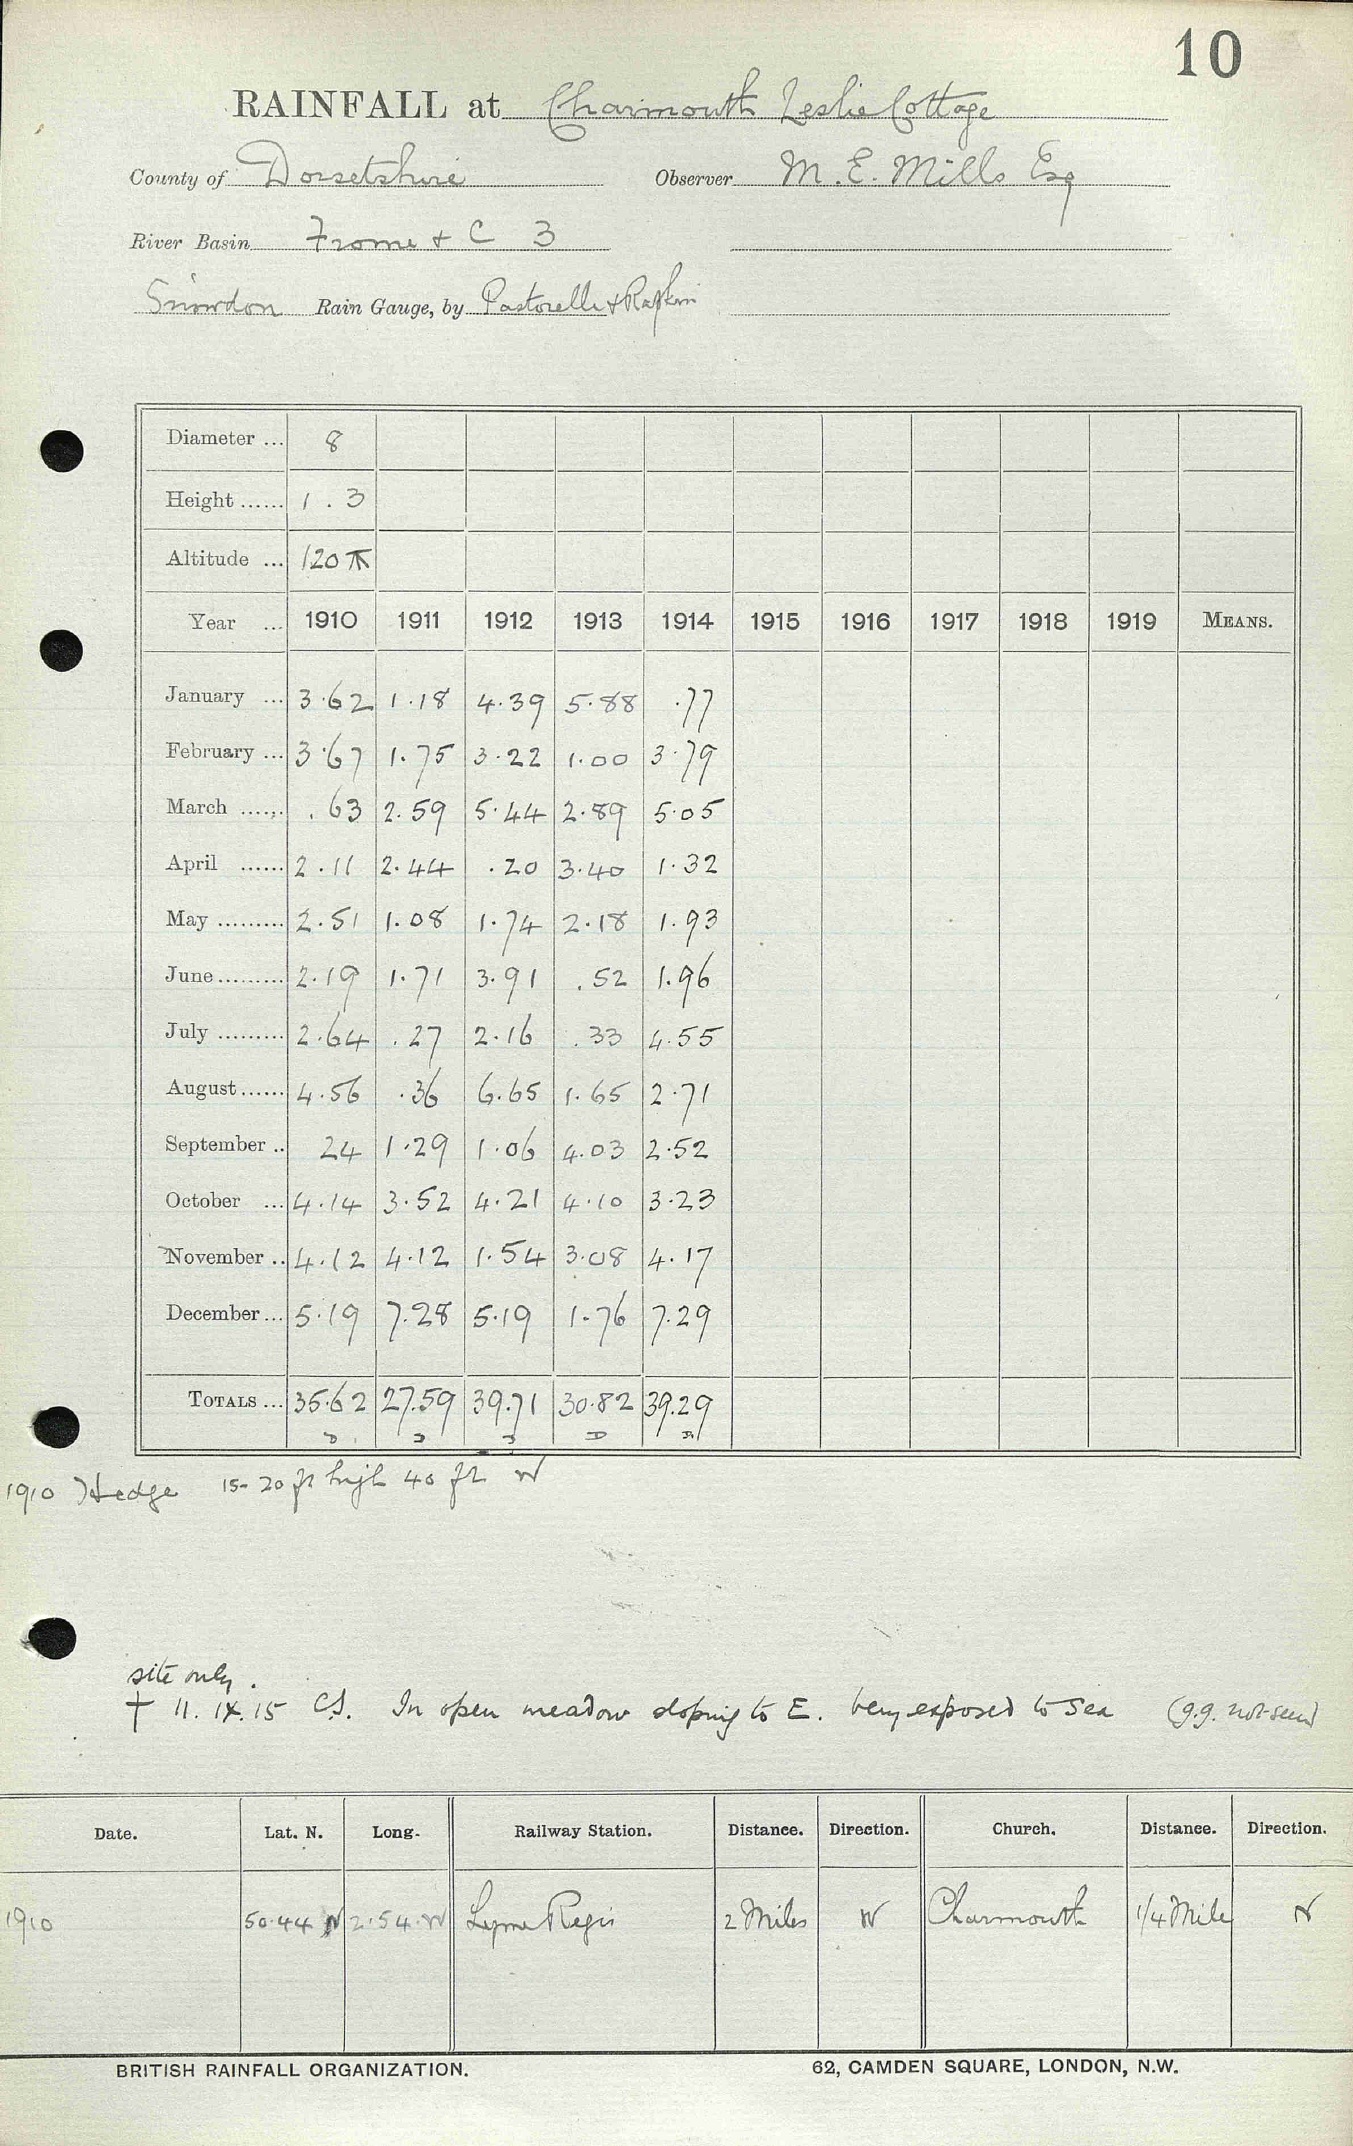 10
RAINFALL at Charmouth Leslie Cottage
County of Dorsetshire Observer M. E. Mills Esq
River Basin Frome & C 3
Snowdon Rain Gauge, by Pastorelli & Rapkin
Diameter ... 8
Height ...... 1 . 3
Altitude ... 120
Year ... 1910 1911 1912 1913 1914 1915 1916 1917 1918 1919 MEANS.
January ... 3.62 1.18 4.39 5.88 .77
February ... 3.67 1.75 3.22 1.00 3.79
March ...... .63 2.59 5.44 2.89 5.05
April ...... 2.11 2.44 .20 3.40 1.32
May ......... 2.51 1.08 1.74 2.18 1.93
June ......... 2.19 1.71 3.91 .52 1.96
July ......... 2.64 .27 2.16 .33 4.55
August ...... 4.56 .36 6.65 1.65 2.71
September .. 24 1.29 1.06 4.03 2.52
October ... 4.14 3.52 4.21 4.10 3.23
November .. 4.12 4.12 1.54 3.08 4.17
December ... 5.19 7.28 5.19 1.76 7.29
TOTALS ... 35.62 27.59 39.71 30.82 39.29
1910 Hedge 15-20 ft high 40 ft W
site only.
† 11.IX.15 C.S. In open meadow sloping to E. very exposed to Sea (g.g. not seen)
Date. Lat. N. Long. Railway Station. Distance. Direction. Church. Distance. Direction.
1910 50.44 N 2.54.W Lyme Regis 2 Miles W Charmouth 1/4 Mile N
BRITISH RAINFALL ORGANIZATION. 62, CAMDEN SQUARE, LONDON, N.W.